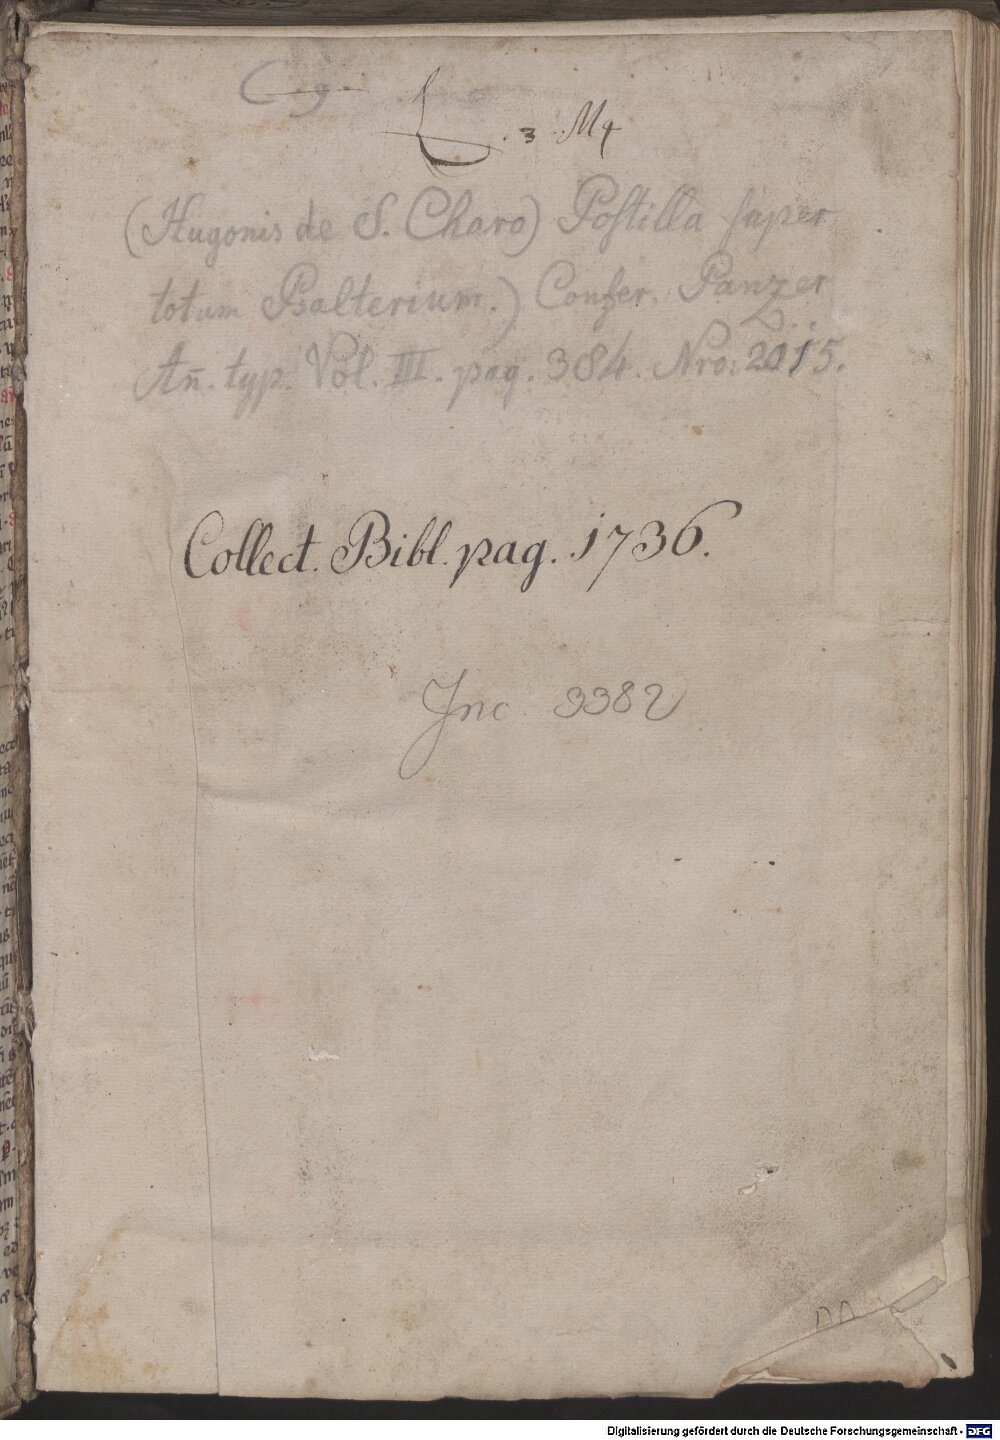 C. 9.
L. 3 M4
(Hugonis de S. Charo) Postilla super
totum Psalterium.) Confer. Panzer
Añ. typ. Vol. III. pag. 384. Nro: 2015.
Collect. Bibl. pag. 1736.
Inc 3382
Digitalisierung gefördert durch die Deutsche Forschungsgemeinschaft - DFG